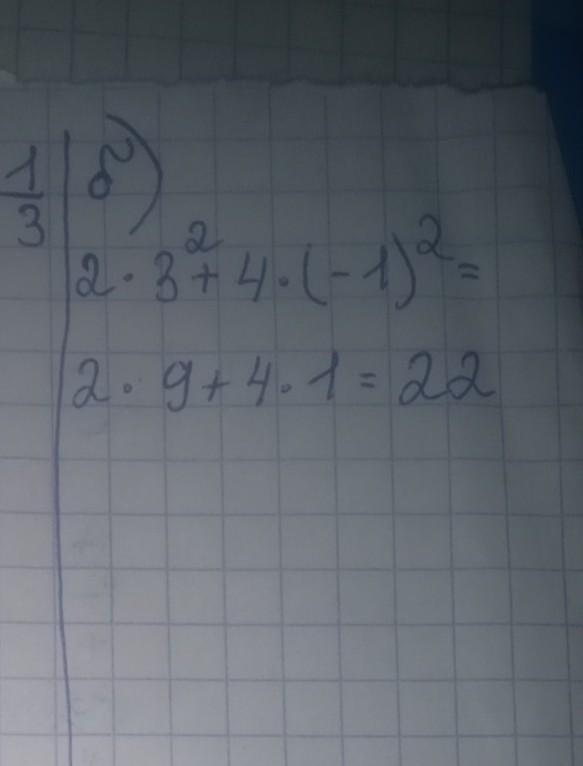 1/3
б)
2 · 3² + 4 · (-1)² =
2 · 9 + 4 · 1 = 22